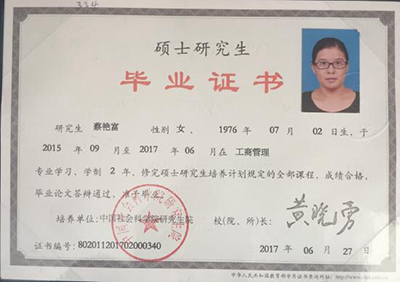 334
硕士研究生
毕业证书
研究生 蔡艳富 性别 女、 1976 年 07 月 02 日生，于
2015 年 09 月至 2017 年 06 月在 工商管理
专业学习，学制 2 年，修完硕士研究生培养计划规定的全部课程，成绩合格，
毕业论文答辩通过，准予毕业。
培养单位：中国社会科学院研究生院 校(院、所)长： 黄晓勇
证书编号：802011201702000340 2017 年 06 月 27 日